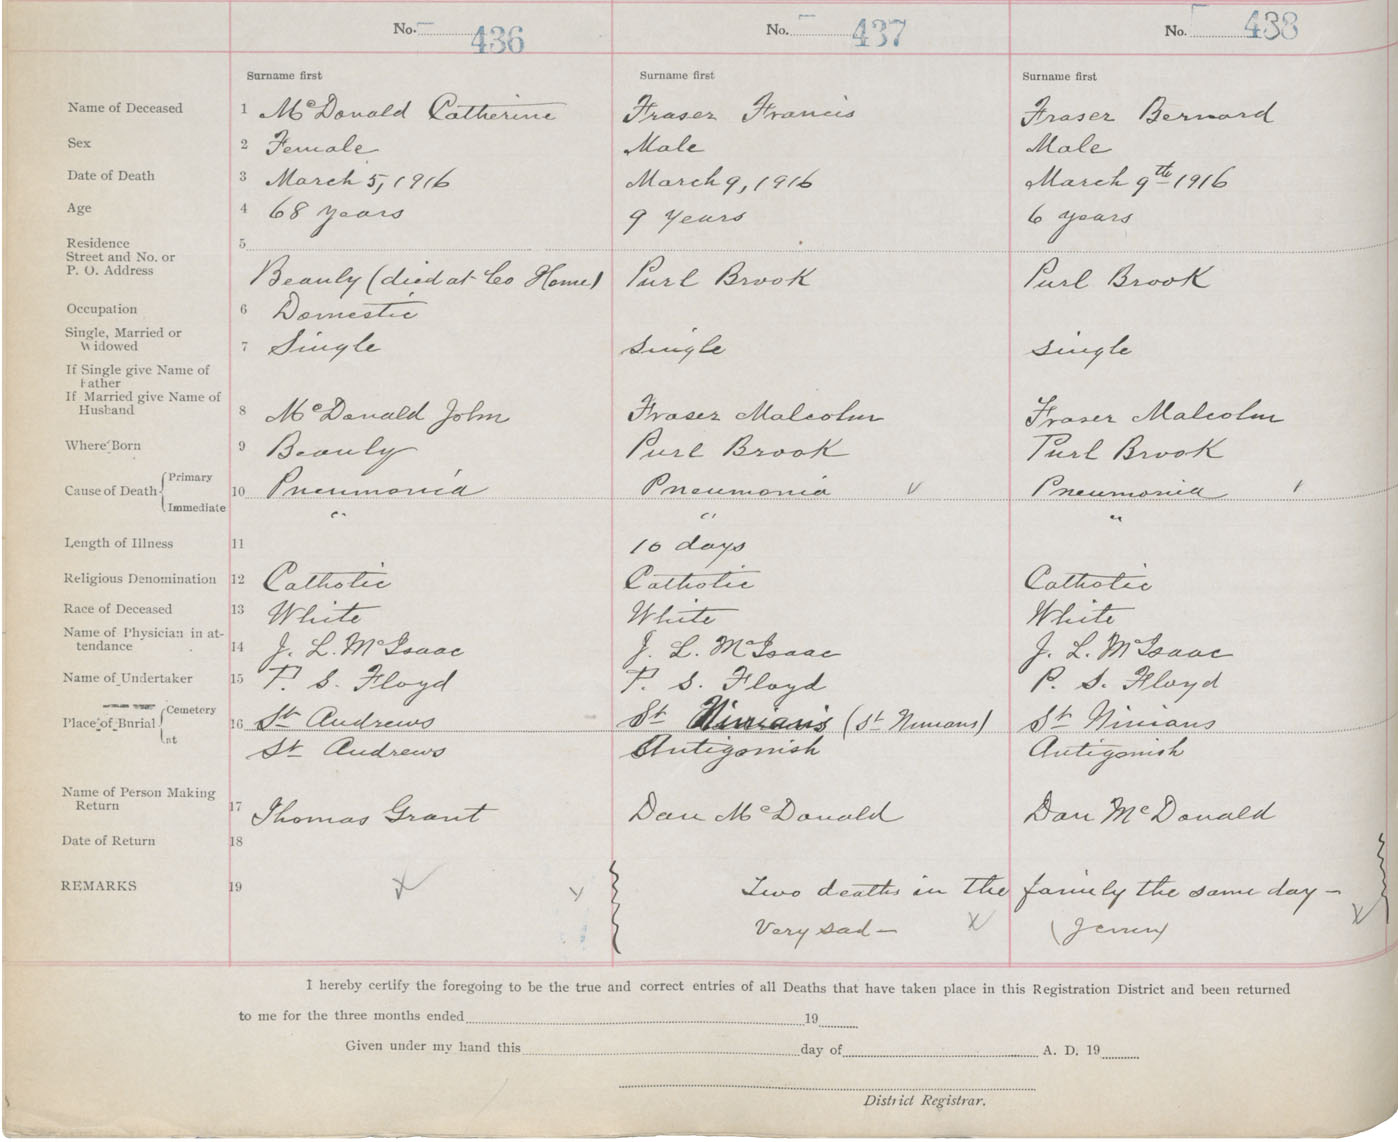 No. 436 No. 437 No. 438
Surname first Surname first Surname first
Name of Deceased 1 McDonald Catherine Fraser Francis Fraser Bernard
Sex 2 Female Male Male
Date of Death 3 March 5, 1916 March 9, 1916 March 9th 1916
Age 4 68 years 9 years 6 years
Residence 5
Street and No. or
P. O. Address Beauly (died at Co Home) Purl Brook Purl Brook
Occupation 6 Domestic
Single, Married or
Widowed 7 Single Single Single
If Single give Name of
Father
If Married give Name of
Husband 8 McDonald John Fraser Malcolm Fraser Malcolm
Where Born 9 Beauly Purl Brook Purl Brook
Cause of Death Primary 10 Pneumonia Pneumonia Pneumonia
Immediate " " "
Length of Illness 11 10 days
Religious Denomination 12 Catholic Catholic Catholic
Race of Deceased 13 White White White
Name of Physician in at-
tendance 14 J. L. McIsaac J. L. McIsaac J. L. McIsaac
Name of Undertaker 15 P. S. Floyd P. S. Floyd P. S. Floyd
Place of Burial Cemetery 16 St Andrews St Ninians (St Ninians) St Ninians
St Andrews Antigonish Antigonish
Name of Person Making
Return 17 Thomas Grant Dan McDonald Dan McDonald
Date of Return 18
REMARKS 19 Two deaths in the family the same day –
Very sad –
I hereby certify the foregoing to be the true and correct entries of all Deaths that have taken place in this Registration District and been returned
to me for the three months ended 19
Given under my hand this day of A. D. 19
District Registrar.